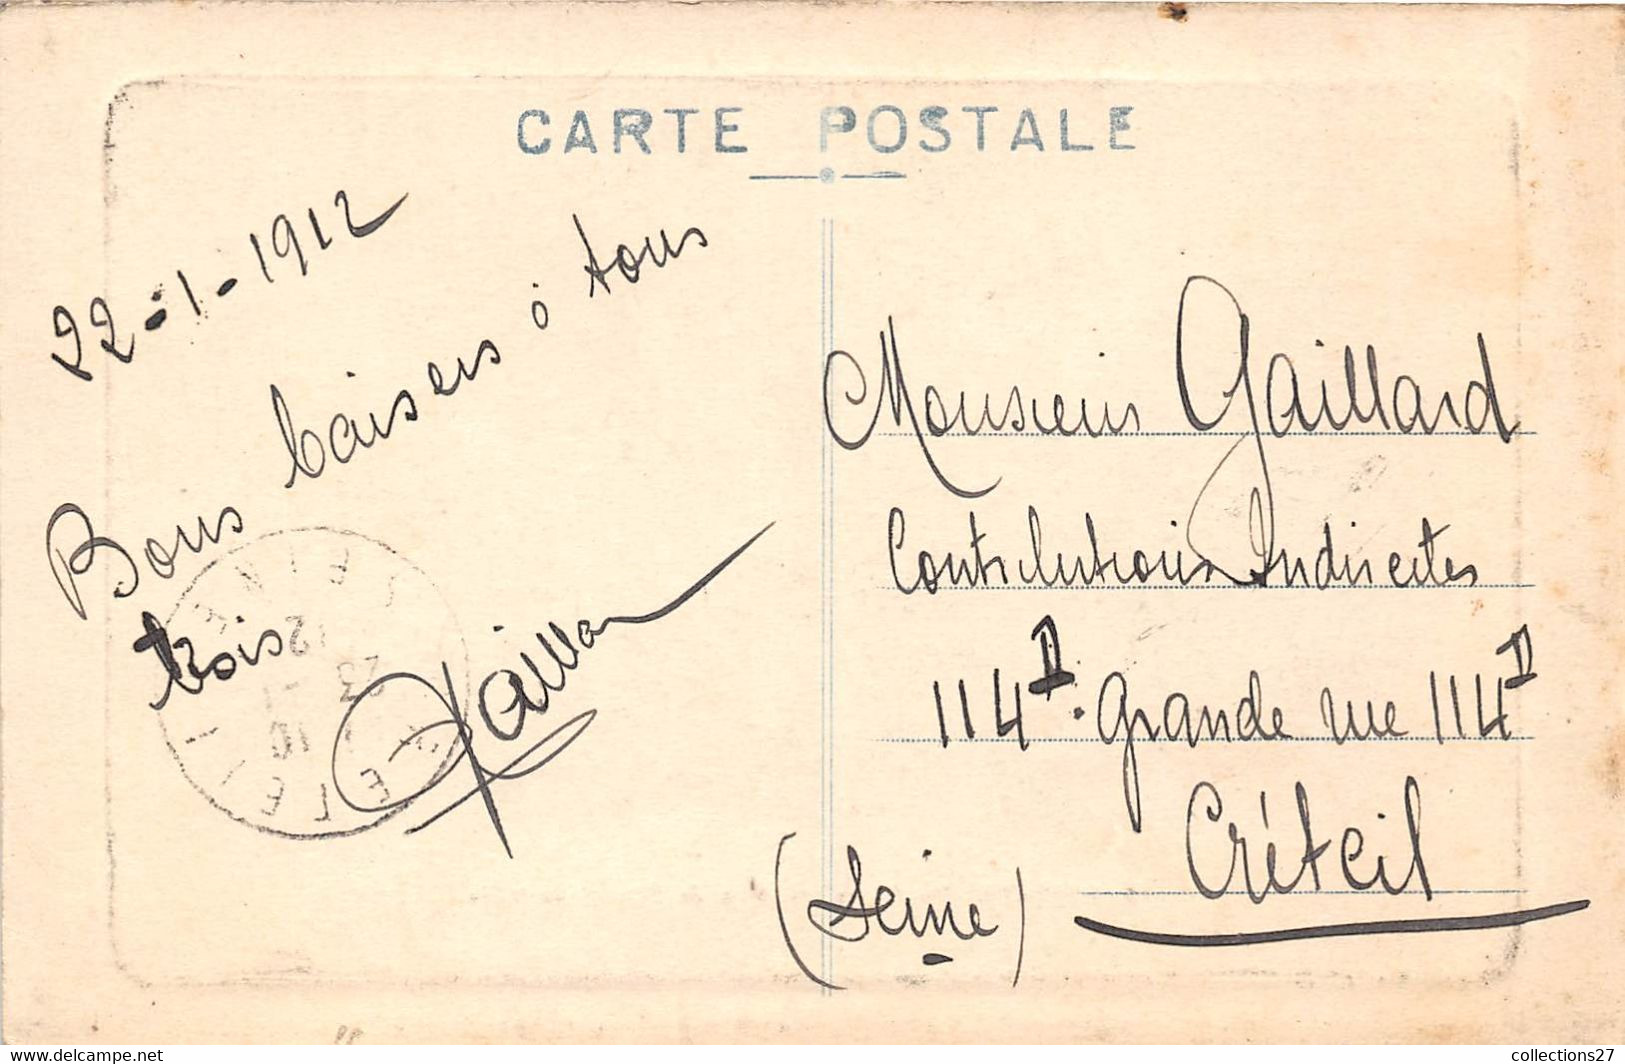 CARTE POSTALE
22-1-1912
Bons baisers à tous
trois
Gaillard
Monsieur Gaillard
Contributions Indirectes
114D. Grande rue 114D
Créteil
(Seine)
CRETEIL
SEINE
10
23 -1
12
collections27